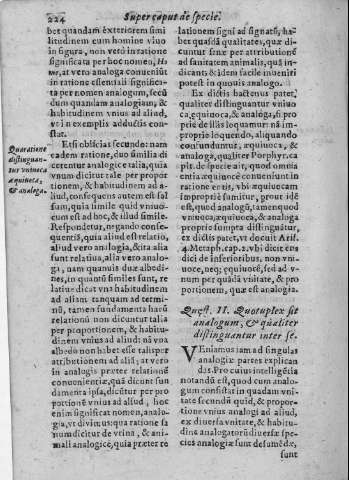 224 Super caput de specie.
bet quandam exteriorem simi
litudinem cum homine viuo
in figura, non verò in ratione
significata per hoc nomen, Ho
mo, at vero analoga conueniũt
in ratione essentiali significa-
ta per nomen analogum, secũ
dum quandam analogiam, &
habitudinem vnius ad aliud,
vt in exemplis adductis con-
stat.
Quaratione
distinguan-
tur vniuoca
æquiuoca,
& analoga.
Etsi obiicias secundo: nam
eadem ratione, duo similia di
cerentur analogice talia, quia
vnum dicitur tale per propor
tionem, & habitudinem ad a-
liud, consequens autem est fal
sum, quia simile quid vniuo-
cum est ad hoc, & illud simile.
Respondetur, negando conse-
quentiã, quia aliud est relatio,
aliud vero analogia, & ita alia
sunt relatiua, alia vero analo-
ga; nam quanuis duæ albedi-
nes, in quantũ similes sunt, re
latiuè dicat vna habitudinem
ad aliam tanquam ad termi-
nũ, tamen fundamenta harũ
relationũ non dicuntur talia
per proportionem, & habitu-
dinem vnius ad aliud: nã vna
albedo non habet esse talẽ per
attributionem ad aliã; at vero
in analogis præter relationẽ
conuenientiæ, quã dicunt fun
damenta ipsa, dicũtur per pro
portionẽ vnius ad aliud, hoc
enim significat nomen, analo-
gia, vt diximus: qua ratione sa
num dicitur de vrina, & ani-
mali analogicè, quia præter re
lationem signi ad signatũ, ha-
bet quasdã qualitates, quæ di-
cuntur sanæ per attributionẽ
ad sanitatem animalis, quã in-
dicant; & idem facile inueniri
potest in quouis analogo.
Ex dictis hactenus patet,
qualiter distinguantur vniuo
ca, equiuoca, & analoga, si pro
prie de illis loquamur: nã im-
proprie loquendo, aliquando
confunduntur, æquiuoca, &
analoga, qualiter Porphyr. ca
pit. de specie ait, quod omnia
entia æquiuocè conueniunt in
ratione entis, vbi æquiuocum
impropriè sumitur, prout idẽ
est, quod analogũ, tamen quod
vniuoca, æquiuoca, & analoga
proprie sumpta distinguãtur,
ex dictis patet, vt docuit Arist.
4. Metaph. cap. 2. vbi dicit ens
dici de inferioribus, non vni-
uoce, neq; equiuocè, sed ad v-
num per quãdã vnitatẽ, & pro
portionem, quæ est analogia.
Quæst. II. Quotuplex sit
analogum, & qualiter
distinguantur inter se.
VEniamus iam ad singulas
analogiæ partes explican
das. Pro cuius intelligẽtia
notandũ est, quod cum analo-
gum consistat in quadam vni-
tate secundũ quid, & proportio
tione vnius analogi ad aliud,
ex diuersa vnitate, & habitu-
dine analogatorũ diuersæ spe-
cies analogiæ sunt desumẽdæ,
sunt